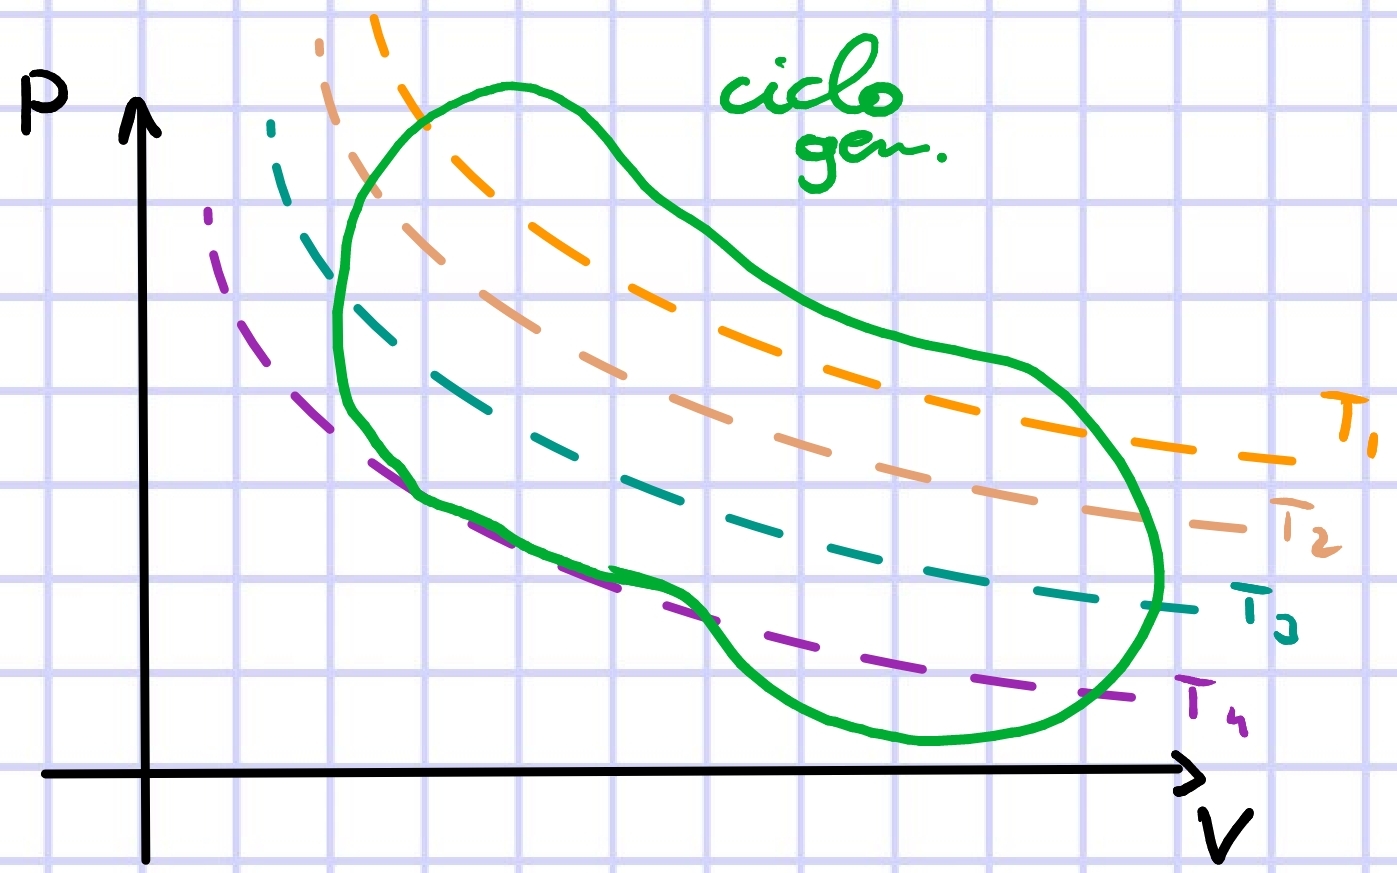 P
ciclo
gen.
T1
T2
T3
T4
V